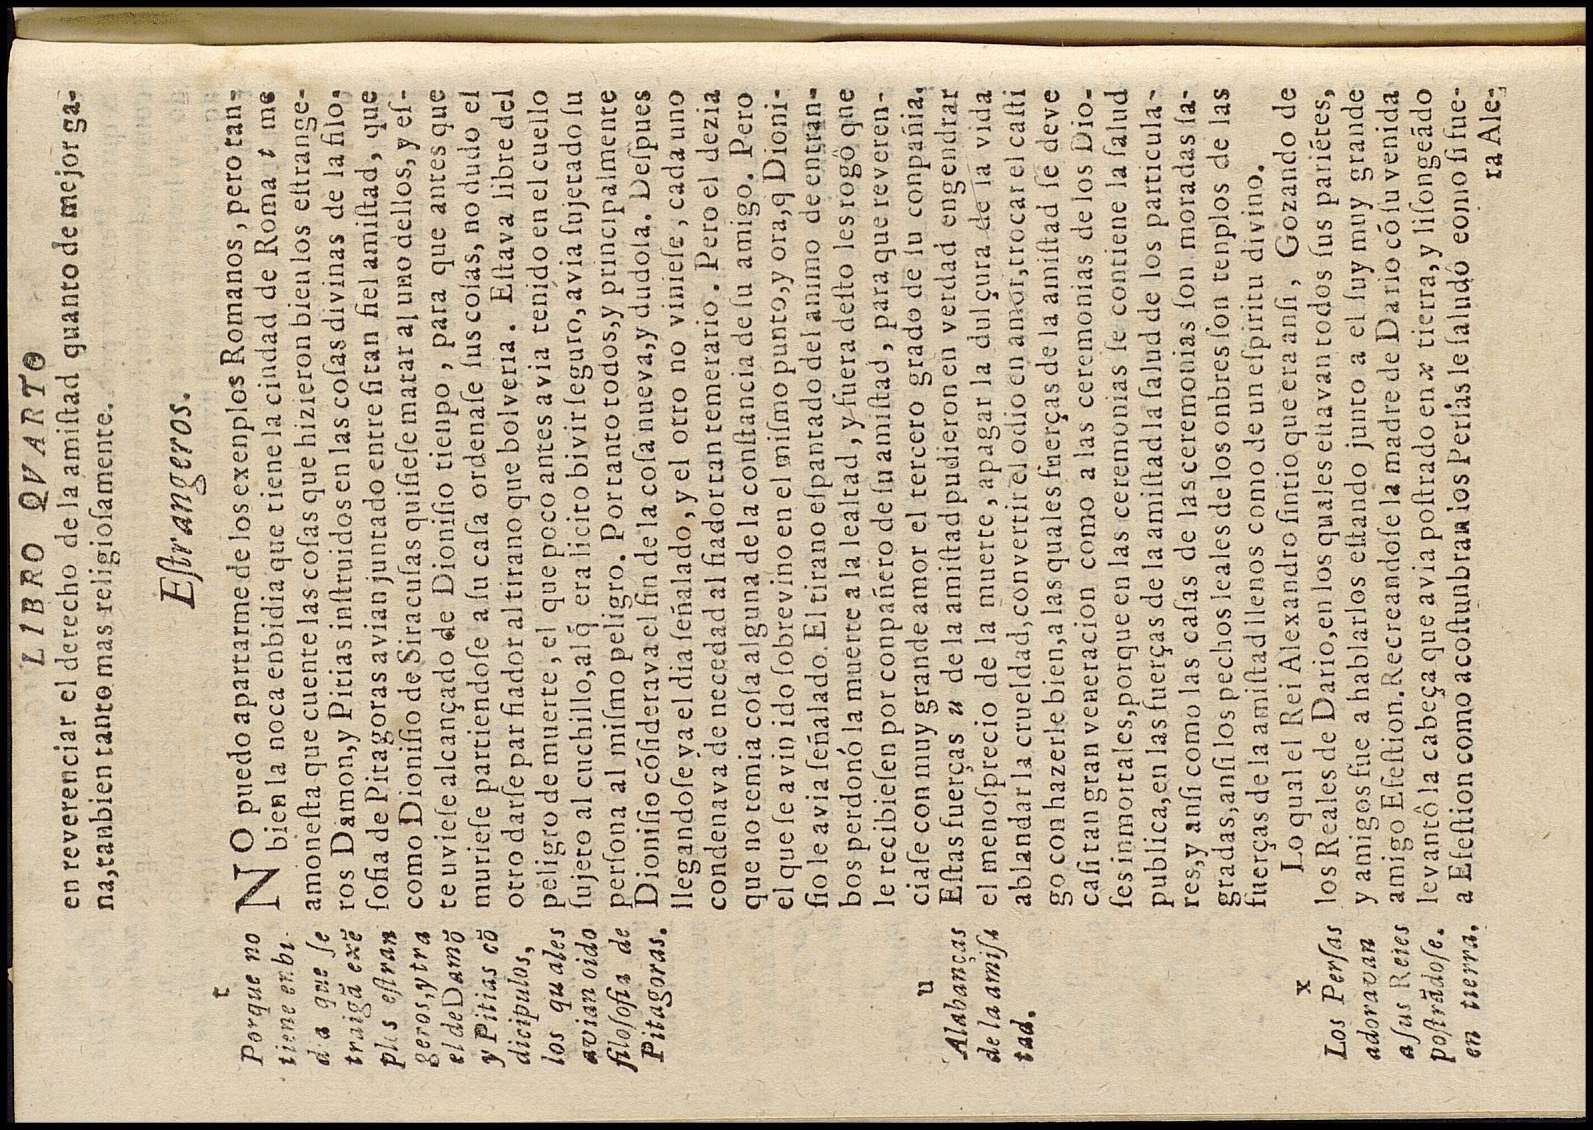 LIBRO QVARTO
en reverenciar el derecho de la amiſtad quanto de mejor ga-
na, tanbien tanto mas religioſamente.
Eſtrangeros.
NO puedo apartarme de los exenplos Romanos, pero tan-
bien la noca enbidia que tiene la ciudad de Roma t me
amoneſta que cuente las coſas que hizieron bien los eſtrange-
ros Damon, y Pitias inſtruidos en las coſas divinas de la filo-
ſofia de Pitagoras avian juntado entre ſi tan fiel amiſtad, que
como Dioniſio de Siracuſas quiſieſe matar al uno dellos, y eſ-
te uvieſe alcançado de Dioniſio tienpo, para que antes que
murieſe partiendoſe a ſu caſa ordenaſe ſus coſas, no dudo el
otro darſe par fiador al tirano que bolveria. Eſtava libre del
peligro de muerte, el que poco antes avia tenido en el cuello
ſujeto al cuchillo, al q̃ era licito bivir ſeguro, avia ſujetado ſu
perſona al miſmo peligro. Por tanto todos, y principalmente
Dioniſio cõſiderava el fin de la coſa nueva, y dudoſa. Deſpues
llegandoſe ya el dia ſeñalado, y el otro no vinieſe, cada uno
condenava de necedad al fiador tan temerario. Pero el dezia
que no temia coſa alguna de la conſtancia de ſu amigo. Pero
el que ſe avin ido ſobrevino en el miſmo punto, y ora, q Dioni-
ſio le avia ſeñalado. El tirano eſpantado del animo de entran-
bos perdonó la muerte a la lealtad, y fuera deſto les rogô que
le recibieſen por conpañero de ſu amiſtad, para que reveren-
ciaſe con muy grande amor el tercero grado de ſu conpañia.
Eſtas fuerças u de la amiſtad pudieron en verdad engendrar
el menoſprecio de la muerte, apagar la dulçura de la vida
ablandar la crueldad, convertir el odio en amor, trocar el caſti
go con hazerle bien, a las quales fuerças de la amiſtad ſe deve
caſi tan gran veneracion como a las ceremonias de los Dio-
ſes inmortales, porque en las ceremonias ſe contiene la ſalud
publica, en las fuerças de la amiſtad la ſalud de los particula-
res, y anſi como las caſas de las ceremonias ſon moradas ſa-
gradas, anſi los pechos leales de los onbres ſon tenplos de las
fuerças de la amiſtad llenos como de un eſpiritu divino.
Lo qual el Rei Alexandro ſintio que era anſi, Gozando de
los Reales de Dario, en los quales eſtavan todos ſus pariẽtes,
y amigos fue a hablarlos eſtando junto a el ſuy muy grande
amigo Efeſtion. Recreandoſe la madre de Dario cõ ſu venida
levantô la cabeça que avia poſtrado en x tierra, y liſongeãdo
a Efeſtion como acoſtunbran los Perſas le ſaludó como ſi fue-
ra Ale-
t
Porque no
tiene enbi-
da que ſe
traigã exẽ
plos eſtran
geros, y tra
el de Damõ
y Pitias cõ
dicipulos,
los quales
avian oido
filoſofia de
Pitagoras.
u
Alabanças
de la amiſ-
tad.
x
Los Perſas
adoravan
a ſus Reies
poſtrãdoſe.
en tierra.